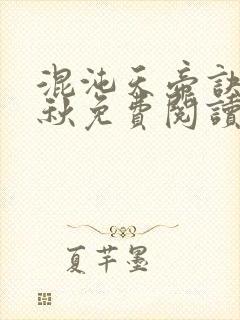 混沌天帝訣
秋免費閱讀
夏芊墨